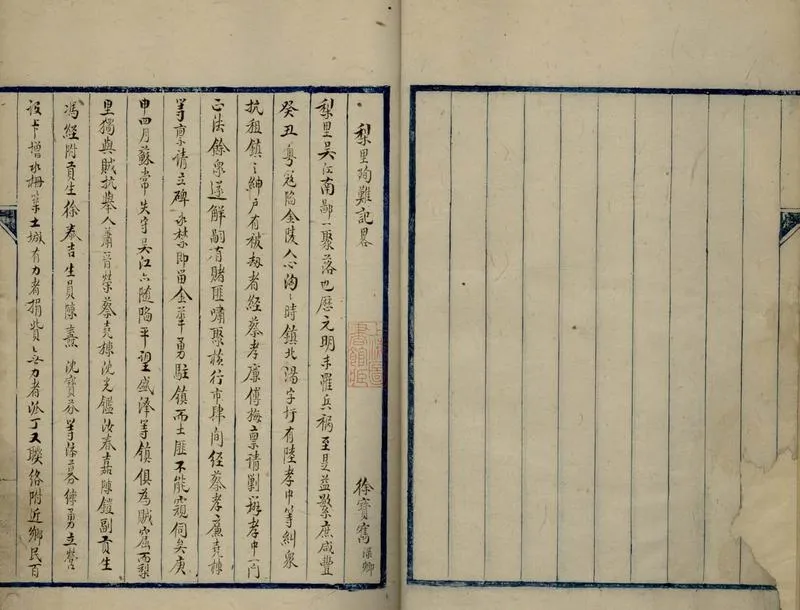 梨里殉難記畧
徐寶 漢卿
梨里吳江南鄙一聚落也歷元明未罹兵禍至是益繁庶咸豐
癸丑粵寇陷金陵人心洶〻時鎮北湯字圩有陸孝中等糾衆
抗租鎮之紳户有被劫者經蔡孝廉傅梅禀請剿辦孝中一門
正法餘衆遂解嗣有賭匪嘯聚橫行市肆間經蔡孝廉堯棟
等禀請立碑永禁即留金 勇駐鎮而土匪不能窺伺矣庚
申四月蘇常失守吳江亦隨陷平望盛澤等鎮俱為賊窟而梨
里獨與賊抗舉人蕭晉榮蔡堯棟沈光鑑汝春嘉陳鎧副貢生
馮經附貢生徐泰吉生員陳熹沈寳 等添募練勇立營
設卡增水柵築土城有力者捐貲〻無力者派丁又聯絡附近鄉民百